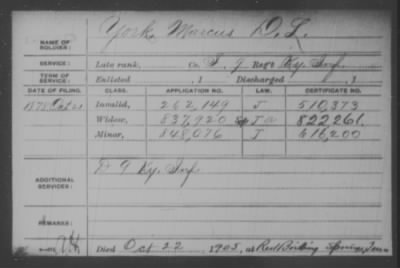 NAME OF SOLDIER: York, Marcus D. L.
SERVICE: Late rank, Co. S, 9 Reg't Ky. Inf.
TERM OF SERVICE: Enlisted , 1 Discharged , 1
DATE OF FILING. CLASS. APPLICATION NO. LAW. CERTIFICATE NO.
1878 Oct 21 Invalid, 262,149 J 510,373
Widow, 837,920 822261
Minor, 848,076 J 616,200
ADDITIONAL SERVICES: D 9 Ky. Inf
REMARKS:
Died Oct 22, 1905, at Red Boiling Springs, Tenn